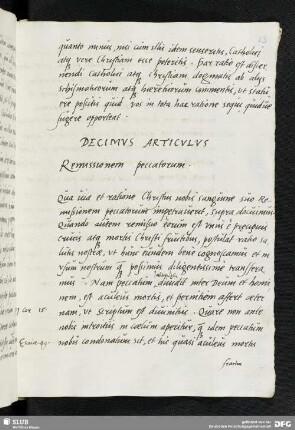 quanto minus, nisi cum illis idem senseritis, Catholici
atq vere Christiani esse poteritis. Par ratio est discer
nendi Catholici atq Christiani dogmatis ab alijs
schismaticorum atq haereticorum commentis, ut statu
ere possitis quid vos in tota hac ratione sequi quidue
fugere oporteat.
DECIMVS ARTICVLVS
Remissionem peccatorum.
Qua uia et ratione Christus nobis sanguine suo Re
missionem peccatorum impetrauerit, supra docuimus.
Quando autem remissio eorum est unus è precipuis
crucis atq mortis Christi fructibus, postulat ratio sa
lutis nostrae, ut hunc eundem bene cognoscamus et in
usum nostrum q possimus diligentissime transfera
mus. Nam peccatum, diuidit inter Deum et homi
nem, est aculeus mortis, et perniciem affert aeter
nam, ut scriptum est diuinitus. Quare non ante
nobis introitus in coelum aperitur, q idem peccatum
nobis condonatum sit, et hic quasi aculeus mortis
1 Cor 15.
SLUB
DFG